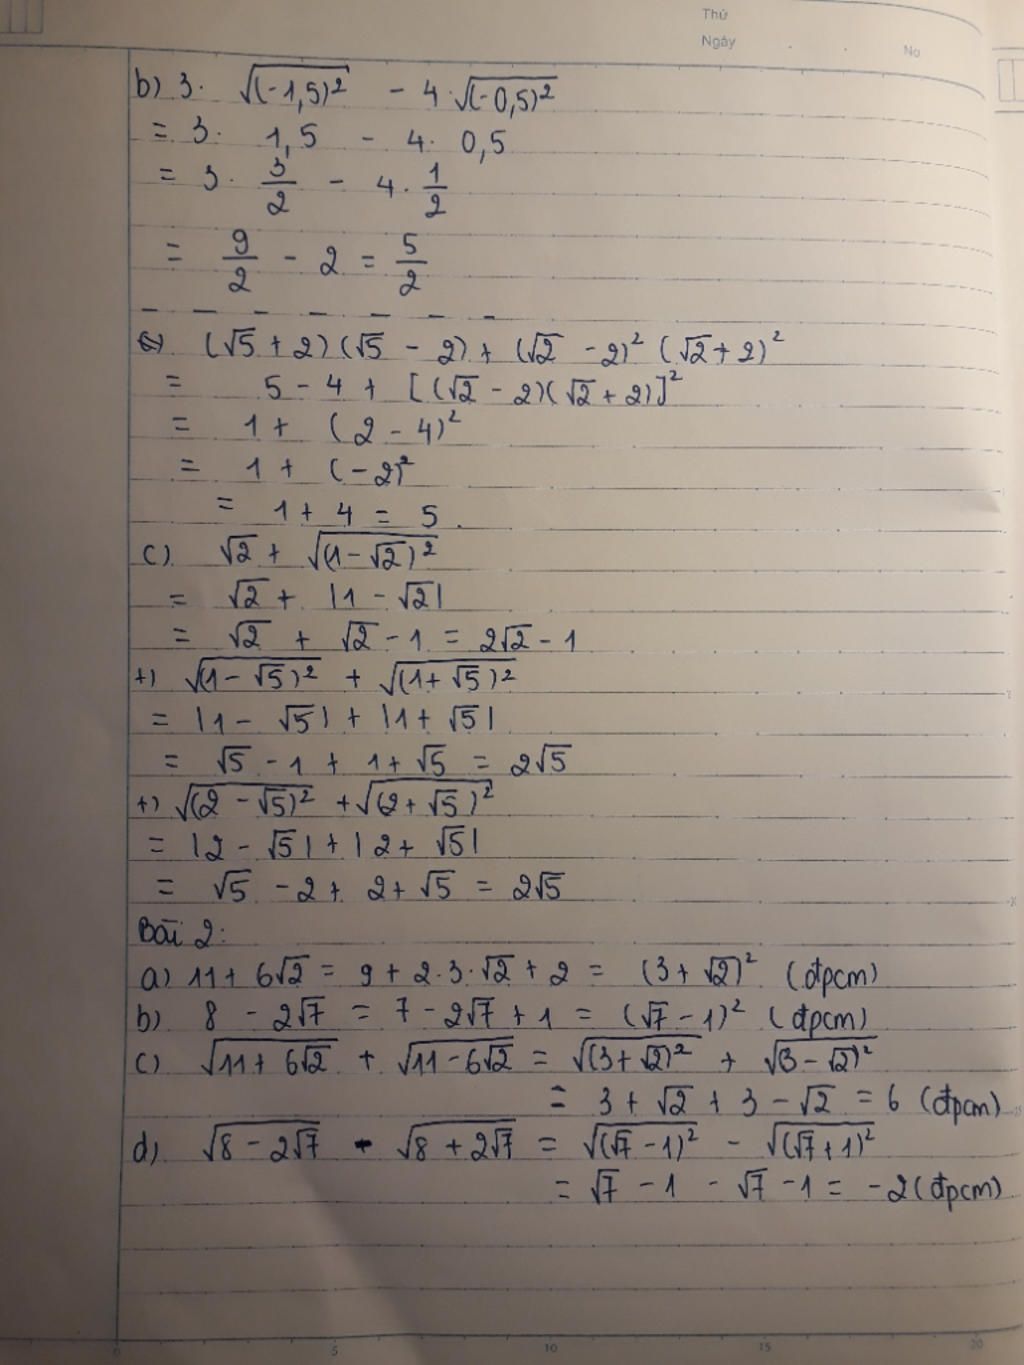 Thứ
Ngày
No
b) 3. √(-1,5)² - 4.√(-0,5)²
= 3. 1,5 - 4. 0,5
= 3. 3/2 - 4. 1/2
= 9/2 - 2 = 5/2
(√5 + 2)(√5 - 2) + (√2 - 2)² (√2 + 2)²
= 5 - 4 + [(√2 - 2)(√2 + 2)]²
= 1 + (2 - 4)²
= 1 + (-2)²
= 1 + 4 = 5.
c) √2 + √(1-√2)²
= √2 + |1 - √2|
= √2 + √2 - 1 = 2√2 - 1
+) √(1-√5)² + √(1+√5)²
= |1 - √5| + |1 + √5|
= √5 - 1 + 1 + √5 = 2√5
+) √(2-√5)² + √(2+√5)²
= |2 - √5| + |2 + √5|
= √5 - 2 + 2 + √5 = 2√5
Bài 2:
a) 11 + 6√2 = 9 + 2.3.√2 + 2 = (3 + √2)² (đpcm)
b) 8 - 2√7 = 7 - 2√7 + 1 = (√7 - 1)² (đpcm)
c) √11+6√2 + √11-6√2 = √(3+√2)² + √(3-√2)²
= 3 + √2 + 3 - √2 = 6 (đpcm)
d) √8-2√7 - √8+2√7 = √(√7-1)² - √(√7+1)²
= √7 - 1 - √7 - 1 = -2 (đpcm)
0 5 10 15 20